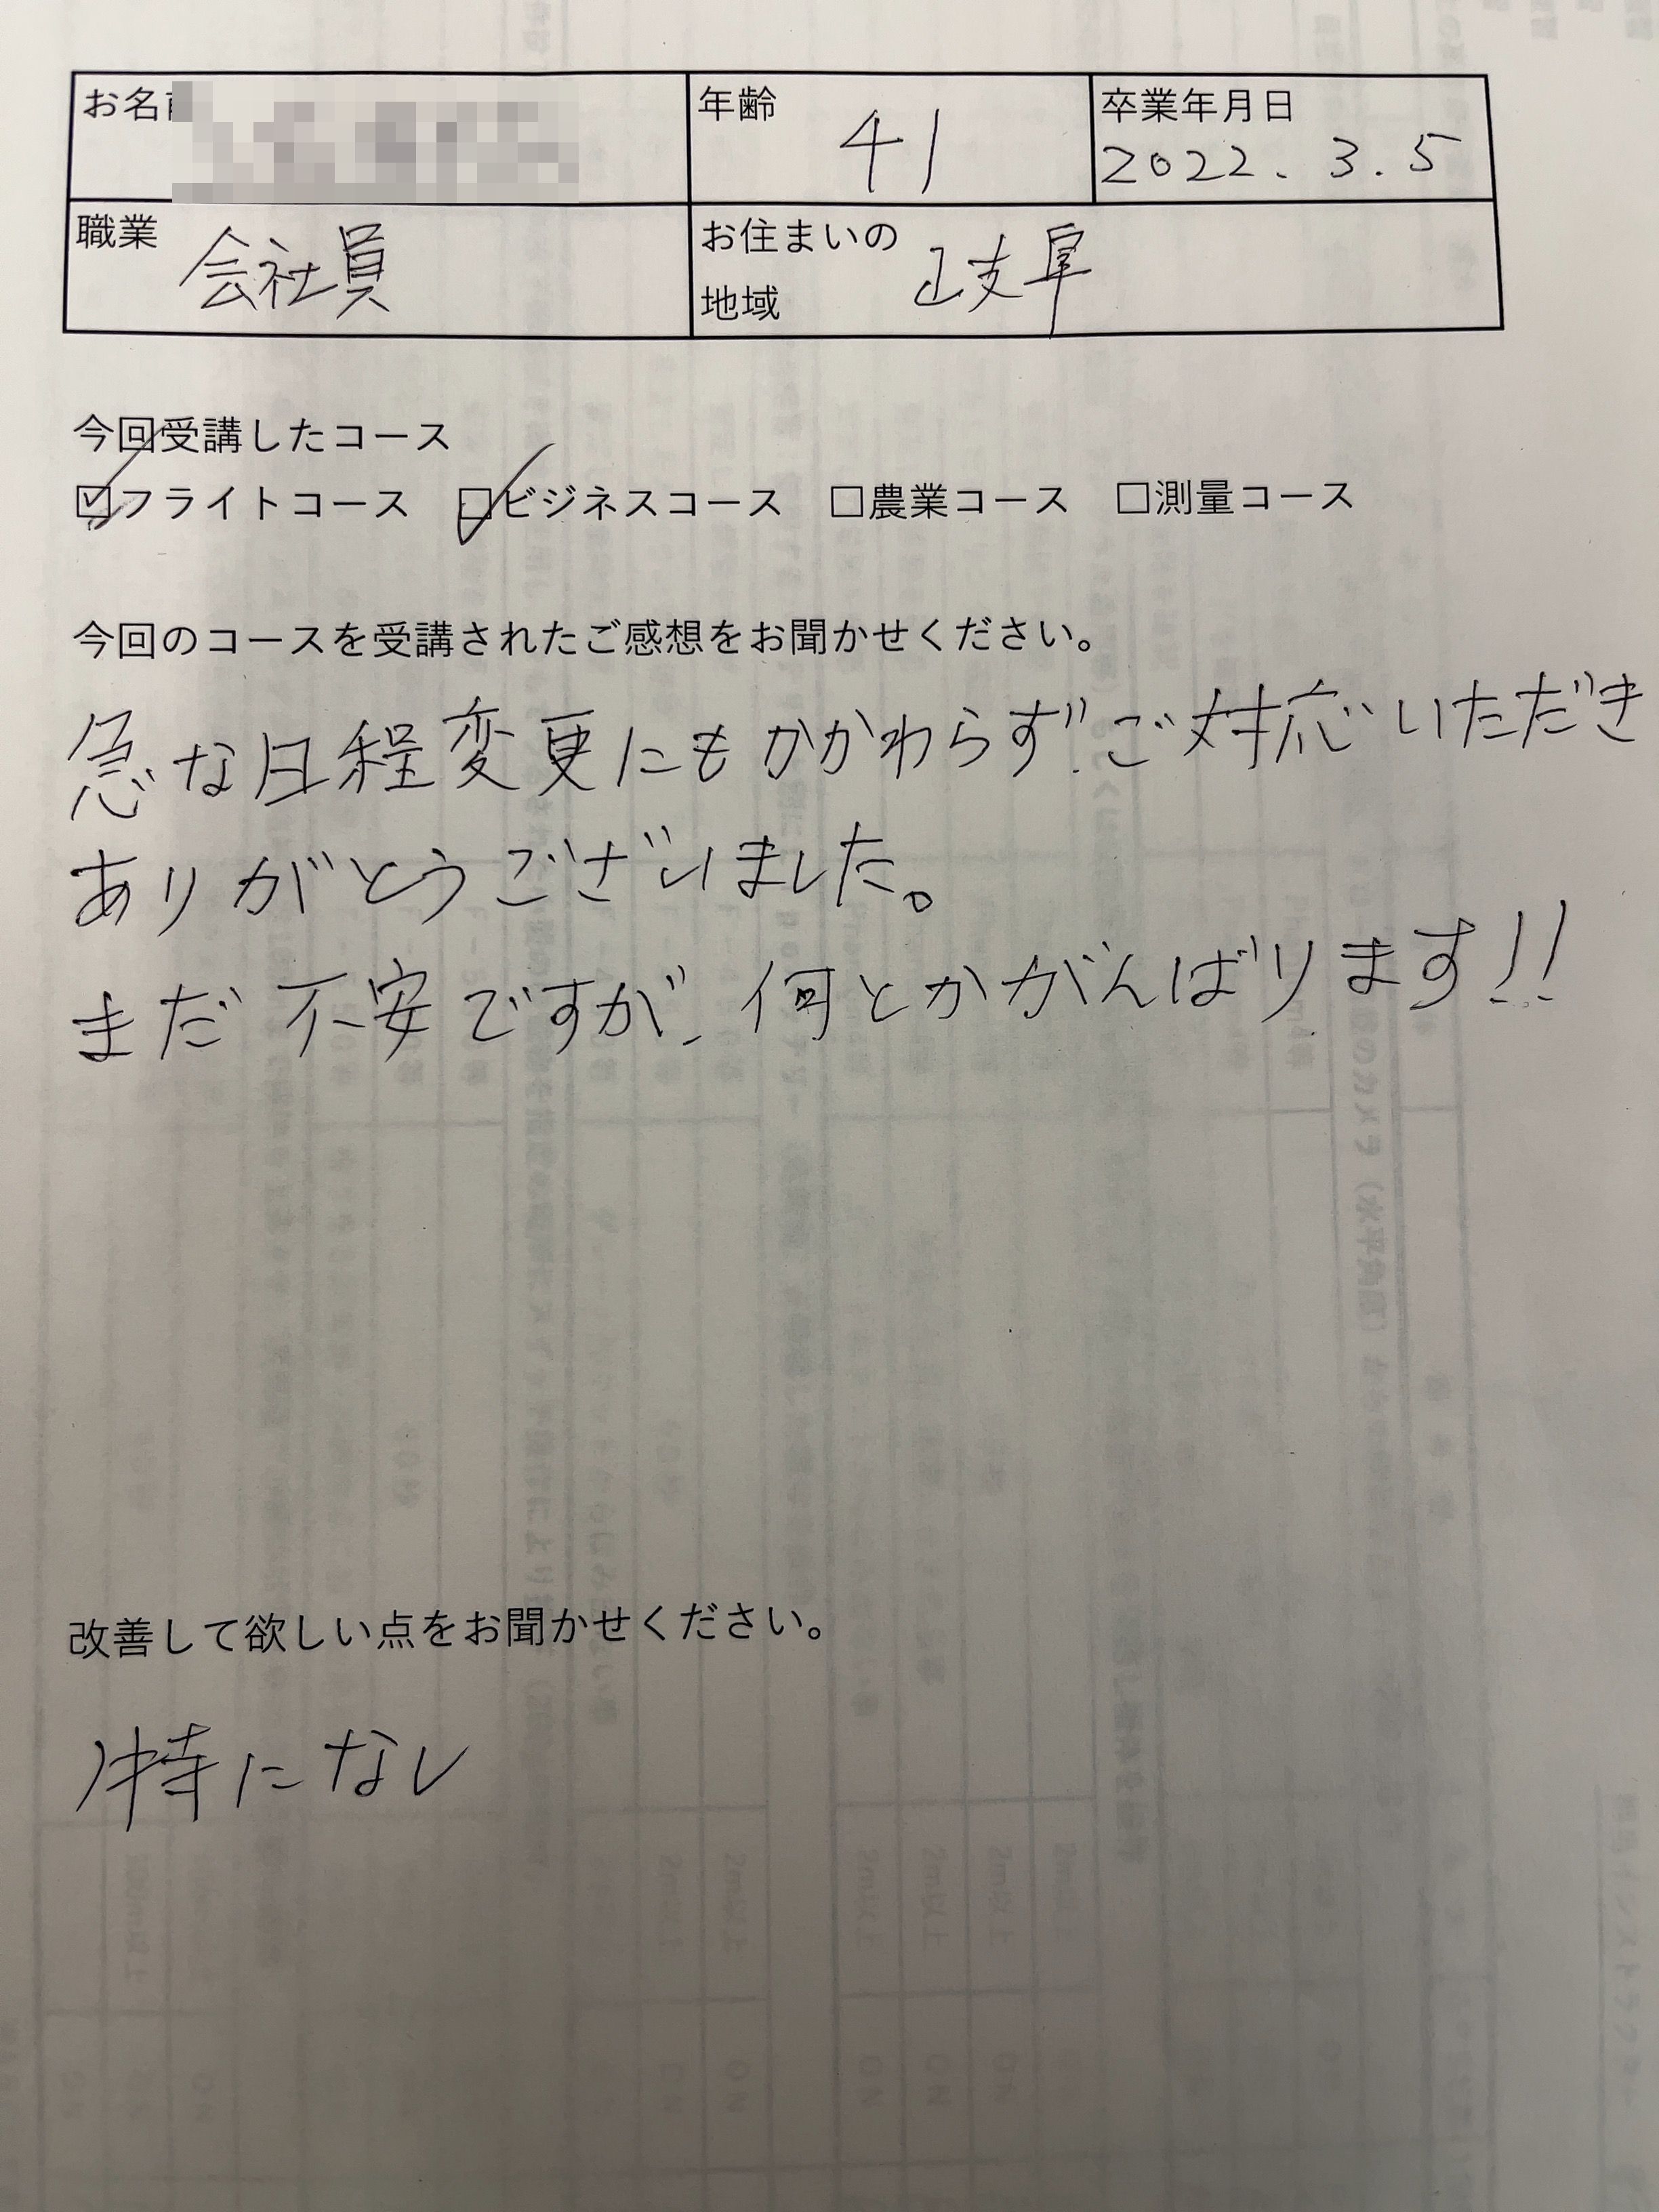 お名前
年齢 41
卒業年月日
2022.3.5
職業 会社員
お住まいの
地域 岐阜
今回受講したコース
☑フライトコース ☑ビジネスコース □農業コース □測量コース
今回のコースを受講されたご感想をお聞かせください。
急な日程変更にもかかわらず、ご対応いただき
ありがとうございました。
まだ不安ですが、何とかがんばります!!
改善して欲しい点をお聞かせください。
特になし